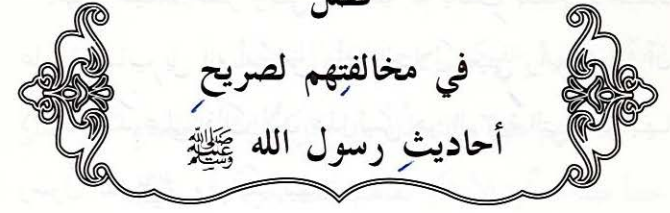 فصل
في مخالفتهم لصريح
أحاديثِ رسول الله ﷺ